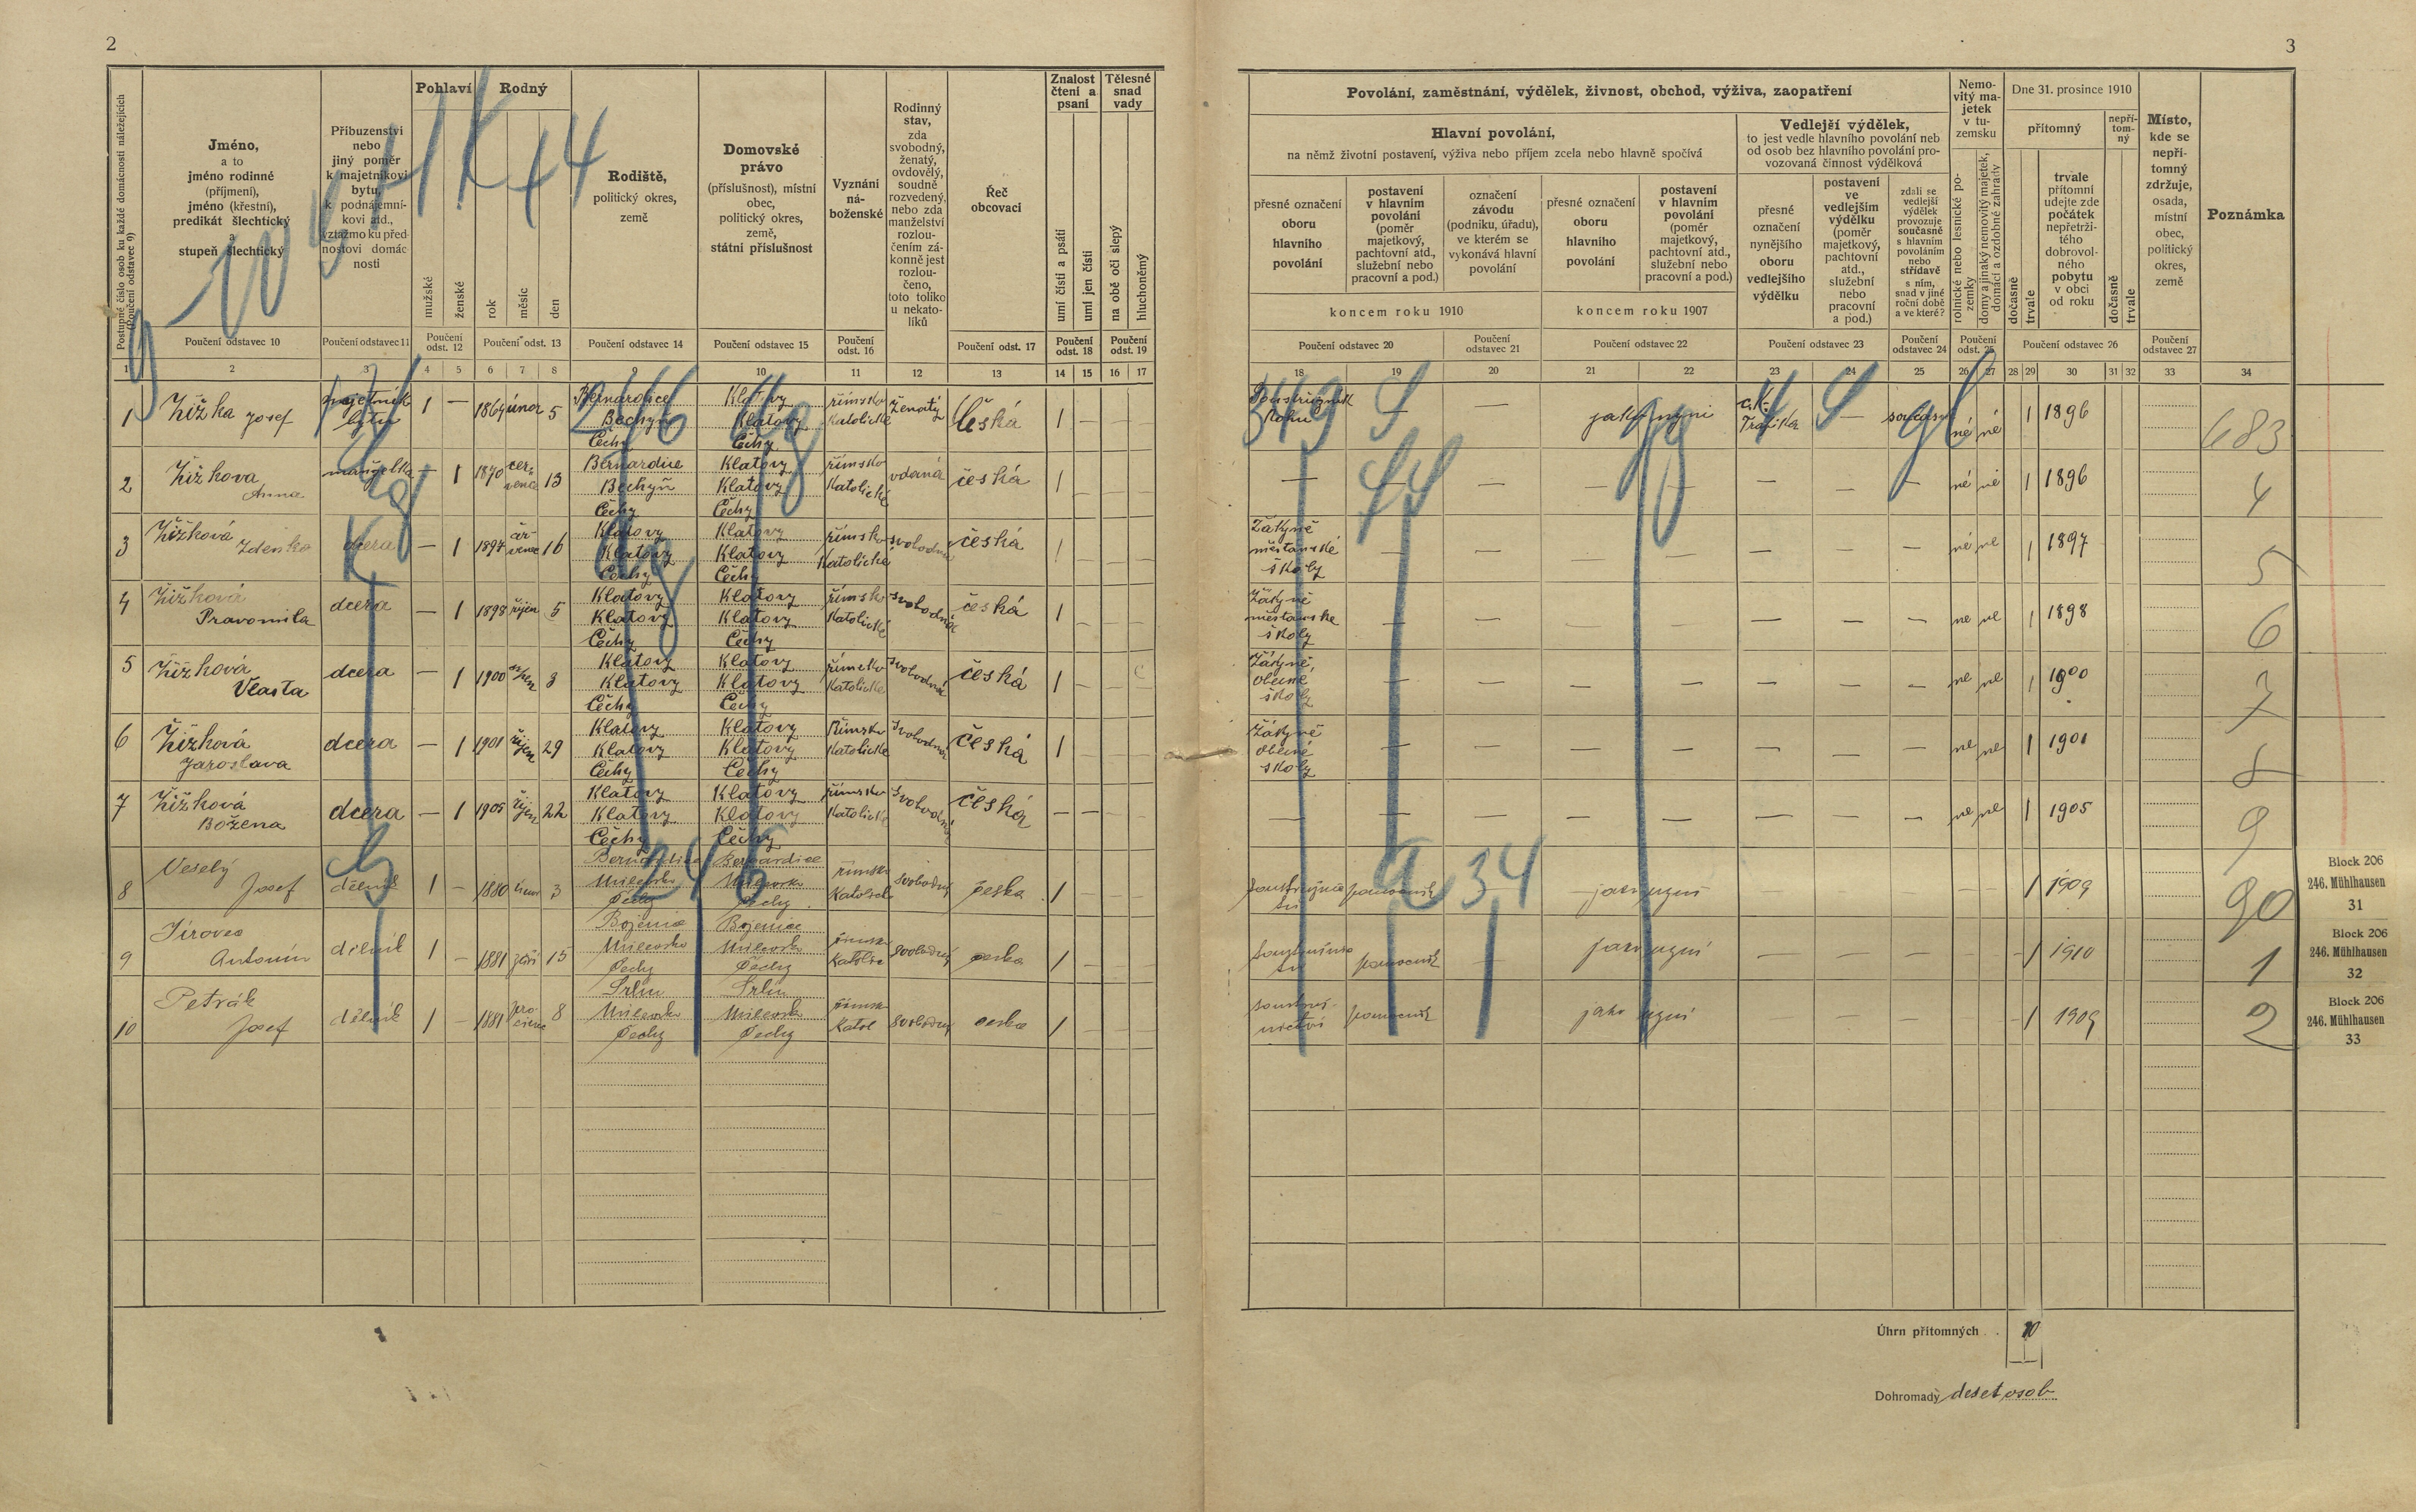 2
Postupné číslo osob ku každé domácnosti náležejících
(Poučení odstavec 9)
Jméno,
a to
jméno rodinné
(příjmení),
jméno (křestní),
predikát šlechtický
a
stupeň šlechtický
Příbuzenství
nebo
jiný poměr
k majetníkovi
bytu,
k podnájemní-
kovi atd.,
vztažmo ku před-
nostovi domác-
nosti
Pohlaví
mužské
ženské
Rodný
rok
měsíc
den
Rodiště,
politický okres,
země
Domovské
právo
(příslušnost), místní
obec,
politický okres,
země,
státní příslušnost
Vyznání
ná-
boženské
Rodinný
stav,
zda
svobodný,
ženatý,
ovdovělý,
soudně
rozvedený,
nebo zda
manželství
rozlou-
čením zá-
konně jest
rozlou-
čeno,
toto toliko
u nekato-
líků
Řeč
obcovací
Znalost
čtení a
psaní
umí čísti a psáti
umí jen čísti
Tělesné
snad
vady
na obě oči slepý
hluchoněmý
Poučení odstavec 10
Poučení odstavec 11
Poučení
odst. 12
Poučení odst. 13
Poučení odstavec 14
Poučení odstavec 15
Poučení
odst. 16
Poučení odst. 17
Poučení
odst. 18
Poučení
odst. 19
1 2 3 4 5 6 7 8 9 10 11 12 13 14 15 16 17
1 Žižka Josef majetník bytu 1 — 1864 únor 5 Bernardice Bechyň Čechy Klatovy Klatovy Čechy římsko katolické ženatý česká 1 — — —
2 Žižkova Anna manželka — 1 1870 července 13 Bernardice Bechyň Čechy Klatovy Klatovy Čechy římsko katolické vdaná česká 1
3 Žižková Zdenka dcera — 1 1897 16 Klatovy Klatovy Čechy Klatovy Klatovy Čechy římsko katolické svobodná česká 1
4 Žižková Pravomila dcera — 1 1898 říjen 5 Klatovy Klatovy Čechy Klatovy Klatovy Čechy římsko katolické svobodná česká 1
5 Žižková Vlasta dcera — 1 1900 8 Klatovy Klatovy Čechy Klatovy Klatovy Čechy římsko katolické svobodná česká 1
6 Žižková Jaroslava dcera — 1 1901 říjen 29 Klatovy Klatovy Čechy Klatovy Klatovy Čechy Římsko katolické svobodná česká 1
7 Žižková Božena dcera — 1 1905 říjen 22 Klatovy Klatovy Čechy Klatovy Klatovy Čechy římsko katolické svobodná česká — —
8 Veselý Josef dělník 1 — 1880 únor 3 Bernardice Milevsko Čechy Bernardice Milevsko Čechy římsko katolick svobodný česka 1
9 Jirovec Antonín dělník 1 — 1881 září 15 Bojenice Milevsko Čechy Bojenice Milevsko Čechy římsko katolic svobodný česka 1
10 Petrák Josef dělník 1 — 1881 prosinec 8 Srlín Milevsko Čechy Srlín Milevsko Čechy římsk katol svobodný česka 1
3
Povolání, zaměstnání, výdělek, živnost, obchod, výživa, zaopatření
Hlavní povolání,
na němž životní postavení, výživa nebo příjem zcela nebo hlavně spočívá
přesné označení
oboru
hlavního
povolání
postavení
v hlavním
povolání
(poměr
majetkový,
pachtovní atd.,
služební nebo
pracovní a pod.)
označení
závodu
(podniku, úřadu),
ve kterém se
vykonává hlavní
povolání
přesné označení
oboru
hlavního
povolání
postavení
v hlavním
povolání
(poměr
majetkový,
pachtovní atd.,
služební nebo
pracovní a pod.)
koncem roku 1910
koncem roku 1907
Vedlejší výdělek,
to jest vedle hlavního povolání neb
od osob bez hlavního povolání pro-
vozovaná činnost výdělková
přesné
označení
nynějšího
oboru
vedlejšího
výdělku
postavení
ve
vedlejším
výdělku
(poměr
majetkový,
pachtovní
atd.,
služební
nebo
pracovní
a pod.)
zdali se
vedlejší
výdělek
provozuje
současně
s hlavním
povoláním
nebo
střídavě
s ním,
snad v jiné
roční době
a ve které?
Nemo-
vitý ma-
jetek
v tu-
zemsku
rolnické nebo lesnické po-
zemky
domy a jinaký nemovitý majetek,
domácí a ozdobné zahrady
Dne 31. prosince 1910
přítomný
nepří-
tom-
ný
dočasně
trvale
trvale
přítomní
udejte zde
počátek
nepřetrži-
tého
dobrovol-
ného
pobytu
v obci
od roku
dočasně
trvale
Místo,
kde se
nepří-
tomný
zdržuje,
osada,
místní
obec,
politický
okres,
země
Poznámka
Poučení odstavec 20
Poučení
odstavec 21
Poučení odstavec 22
Poučení odstavec 23
Poučení
odstavec 24
Poučení
odst. 25
Poučení odstavec 26
Poučení
odstavec 27
18 19 20 21 22 23 24 25 26 27 28 29 30 31 32 33 34
Soustružník jako nyní c.k. Trafika — né né 1 1896 683
— né né 1 1896 4
Žákyně měšťanské školy né ne 1 1897 5
Žákyně měšťanske školy ne ne 1 1898 6
Žákyně, obecné školy ne ne 1 1900 7
Žákyně obecné školy ne ne 1 1901 8
— ne ne 1 1905 9
pomocník 1 1909 90
pomocník 1 1910 1
pomocník jako nyní 1 1909 2
Block 206
246. Mühlhausen
31
Block 206
246. Mühlhausen
32
Block 206
246. Mühlhausen
33
Úhrn přítomných . . 10
Dohromady deset osob